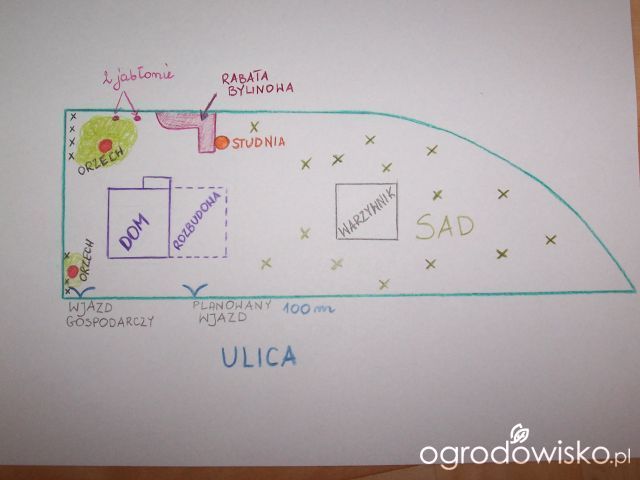 2 jabłonie
RABATA
BYLINOWA
ORZECH
STUDNIA
DOM
ROZBUDOWA
WARZYWNIK
SAD
ORZECH
WJAZD
GOSPODARCZY
PLANOWANY
WJAZD
100m
ULICA
ogrodowisko.pl